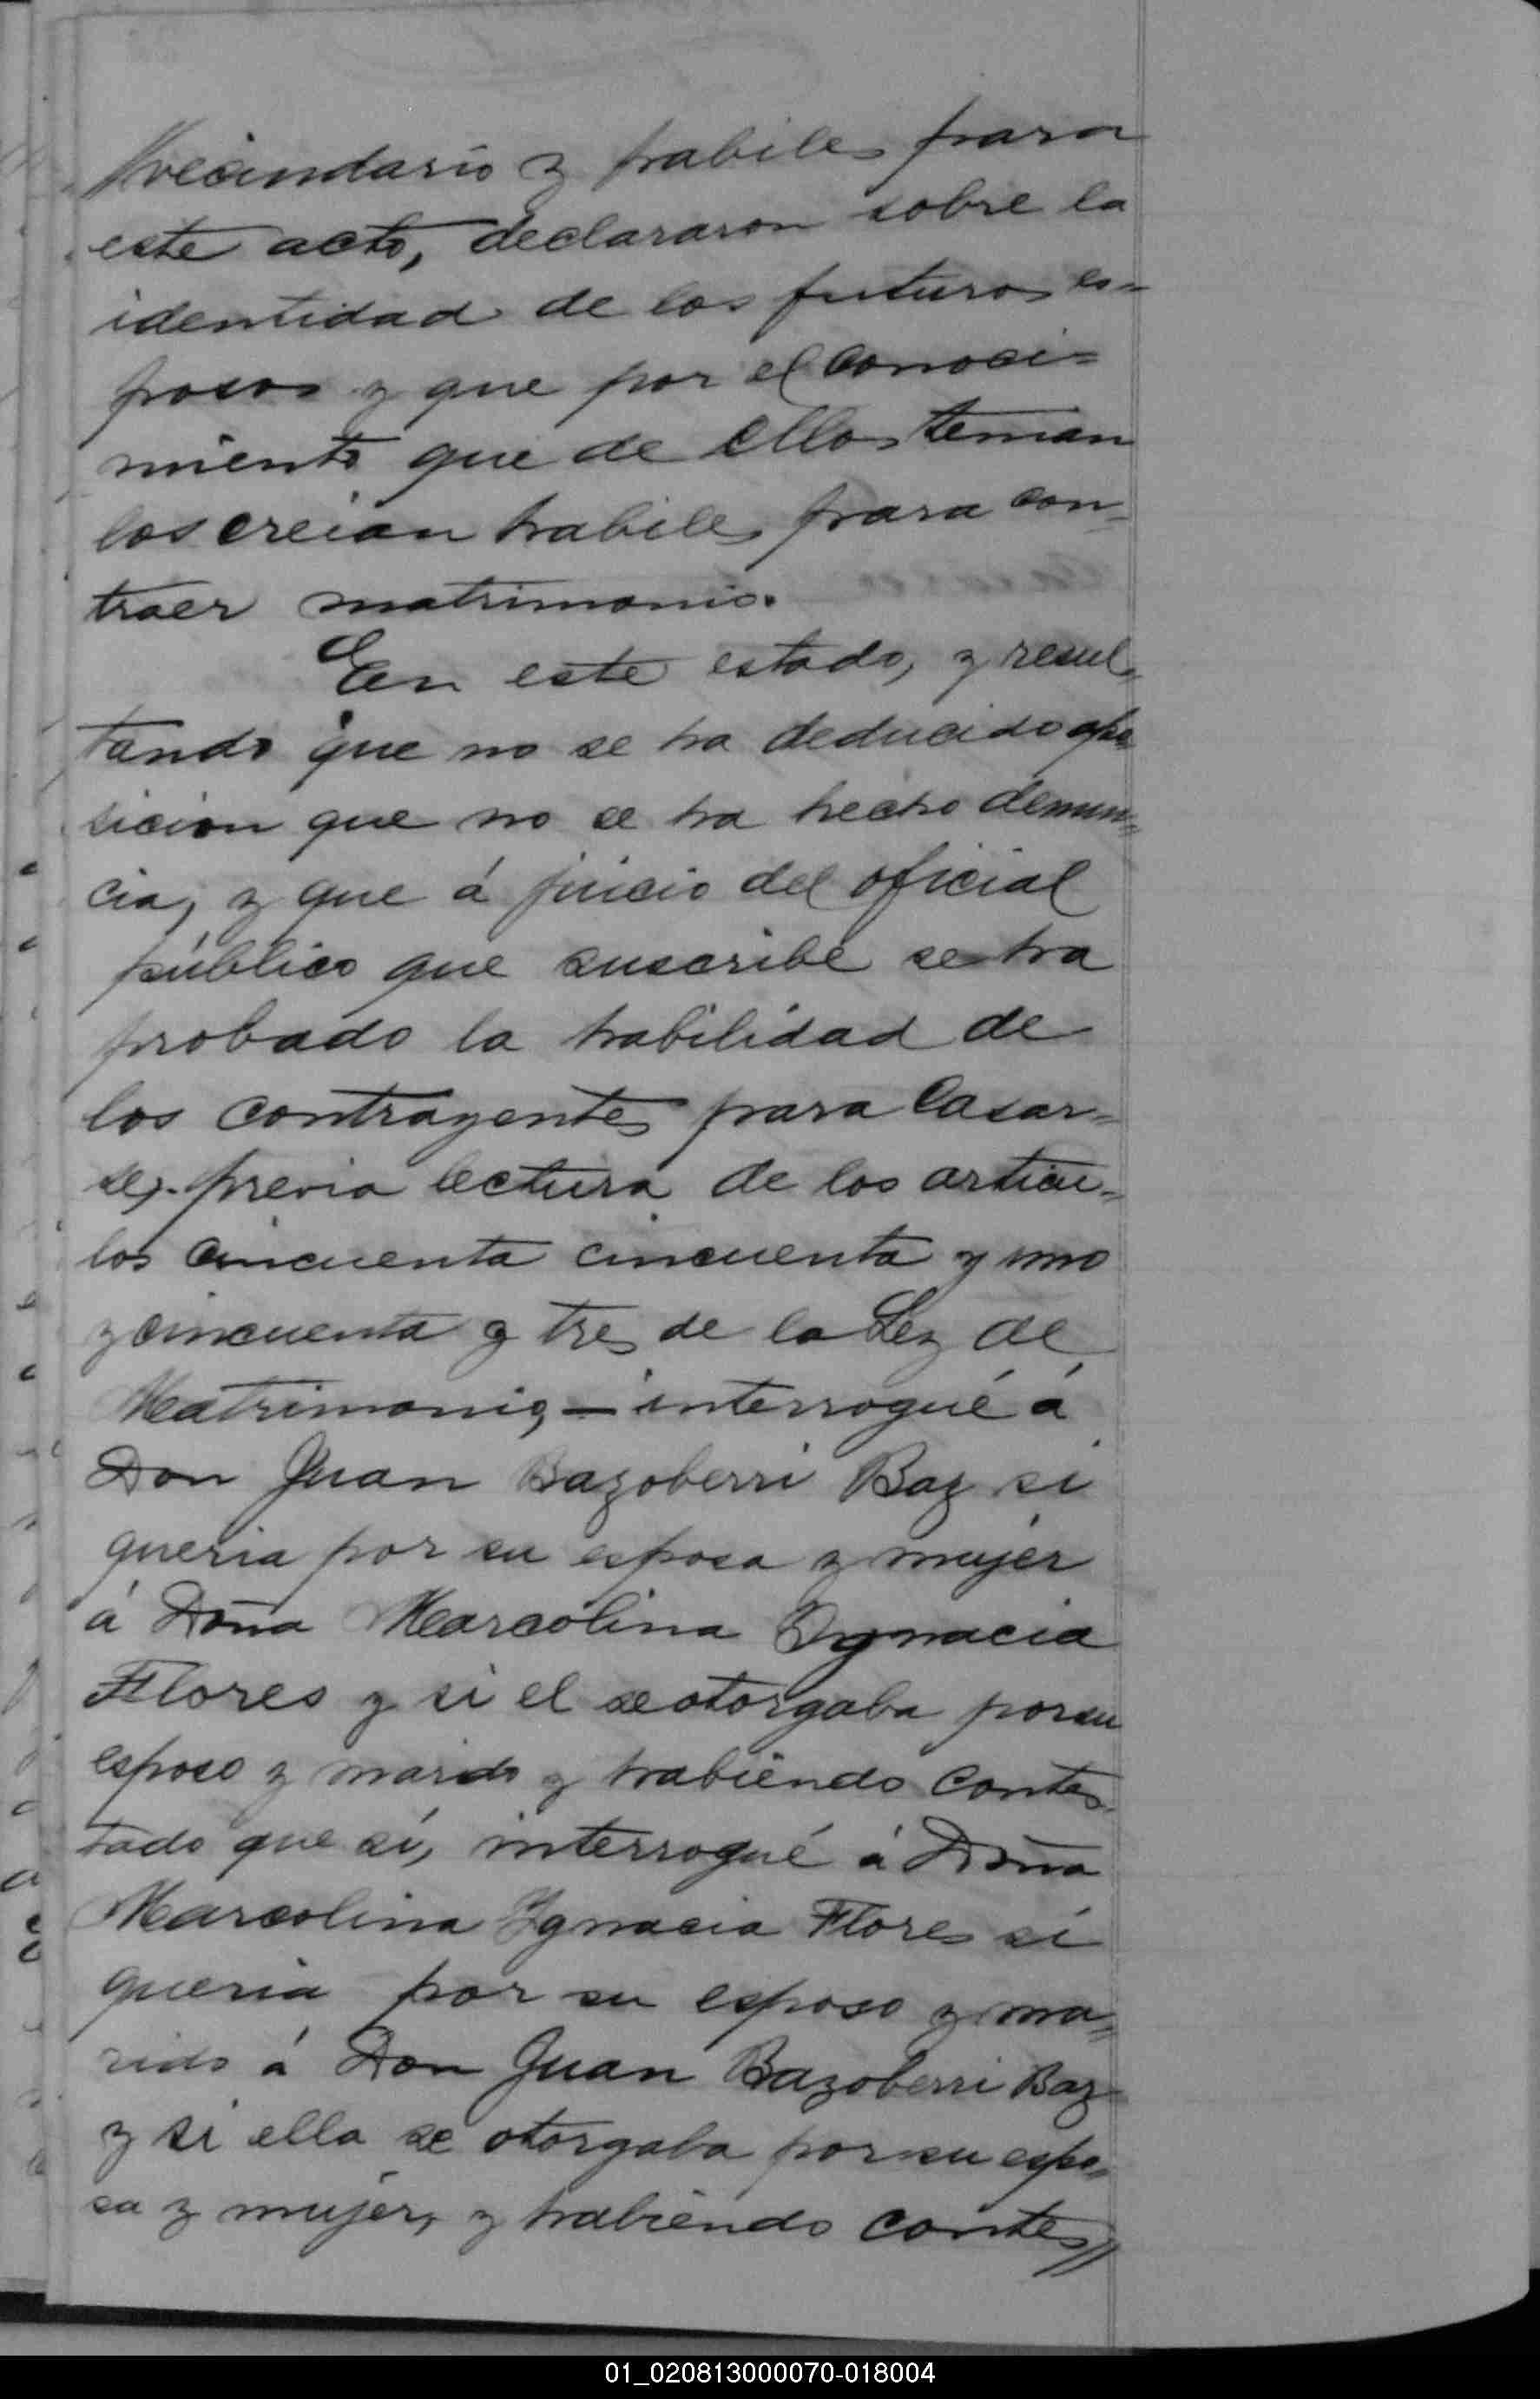 //vecindario y habiles para
este acto, declararon sobre la
identidad de los futuros es=
posos y que por el conoci=
miento que de ellos tenian
los creian habiles para con=
traer matrimonio.
En este estado, y resul=
tando que no se ha deducido opo
sicion que no se ha hecho denun=
cia, y que á juicio del oficial
público que suscribe se ha
probado la habilidad de
los contrayentes para casar=
se, previa lectura de los articu=
los cincuenta cincuenta y uno
y cincuenta y tres de la Ley de
Matrimonio, — interrogué á
Don Juan Bazoberri Baz si
queria por su esposa y mujer
á Doña Marcolina Ygnacia
Flores y si el se otorgaba por su
esposo y marido y habiendo contes=
tado que sí, interrogué á Doña
Marcolina Ygnacia Flores si
queria por su esposo y ma=
rido á Don Juan Bazoberri Baz
y si ella se otorgaba por su espo=
sa y mujer, y habiendo contes//
01_020813000070-018004